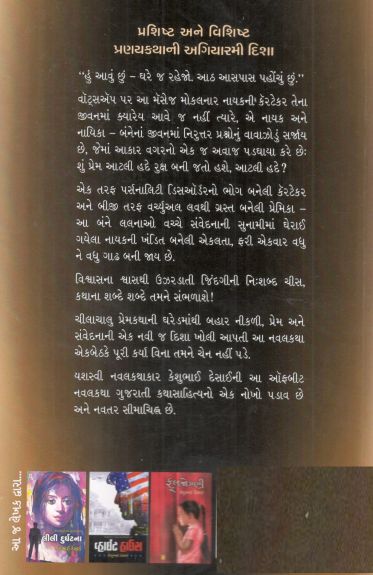 પ્રશિષ્ટ અને વિશિષ્ટ
પ્રણયકથાની અગિયારમી દિશા
“હું આવું છું – ઘરે જ રહેજો. આઠ આસપાસ પહોંચું છું.”
વૉટ્સઍપ પર આ મૅસેજ મોકલનાર નાયકની કૅરટેકર તેના
જીવનમાં ક્યારેય આવે જ નહીં ત્યારે, એ નાયક અને
નાયિકા – બંનેનાં જીવનમાં નિરુત્તર પ્રશ્નોનું વાવાઝોડું સર્જાય
છે, જેમાં આકાર વગરનો એક જ અવાજ પડઘાયા કરે છેઃ
શું પ્રેમ આટલી હદે રુક્ષ બની જતો હશે, આટલી હદે?
એક તરફ પર્સનાલિટી ડિસઑર્ડરનો ભોગ બનેલી કૅરટેકર
અને બીજી તરફ વર્ચ્યુઅલ લવથી ગ્રસ્ત બનેલી પ્રેમિકા –
આ બંને લલનાઓ વચ્ચે સંવેદનાની સુનામીમાં ઘેરાઈ
ગયેલા નાયકની ખંડિત બનેલી એકલતા, ફરી એકવાર વધુ
ને વધુ ગાઢ બની જાય છે.
વિશ્વાસના શ્વાસથી ઉઝરડાતી જિંદગીની નિઃશબ્દ ચીસ,
કથાના શબ્દે શબ્દે તમને સંભળાશે!
ચીલાચાલુ પ્રેમકથાની ઘરેડમાંથી બહાર નીકળી, પ્રેમ અને
સંવેદનાની એક નવી જ દિશા ખોલી આપતી આ નવલકથા
એકબેઠકે પૂરી કર્યા વિના તમને ચેન નહીં પડે.
યશસ્વી નવલકથાકાર કેશુભાઈ દેસાઈની આ ઑફબીટ
નવલકથા ગુજરાતી કથાસાહિત્યનો એક નોખો પડાવ છે
અને નવતર સીમાચિહ્ન છે.
આ જ લેખક દ્વારા...
લીલી દુર્ઘટના
વ્હાઈટ હાઉસ
ફૂલજોગણી